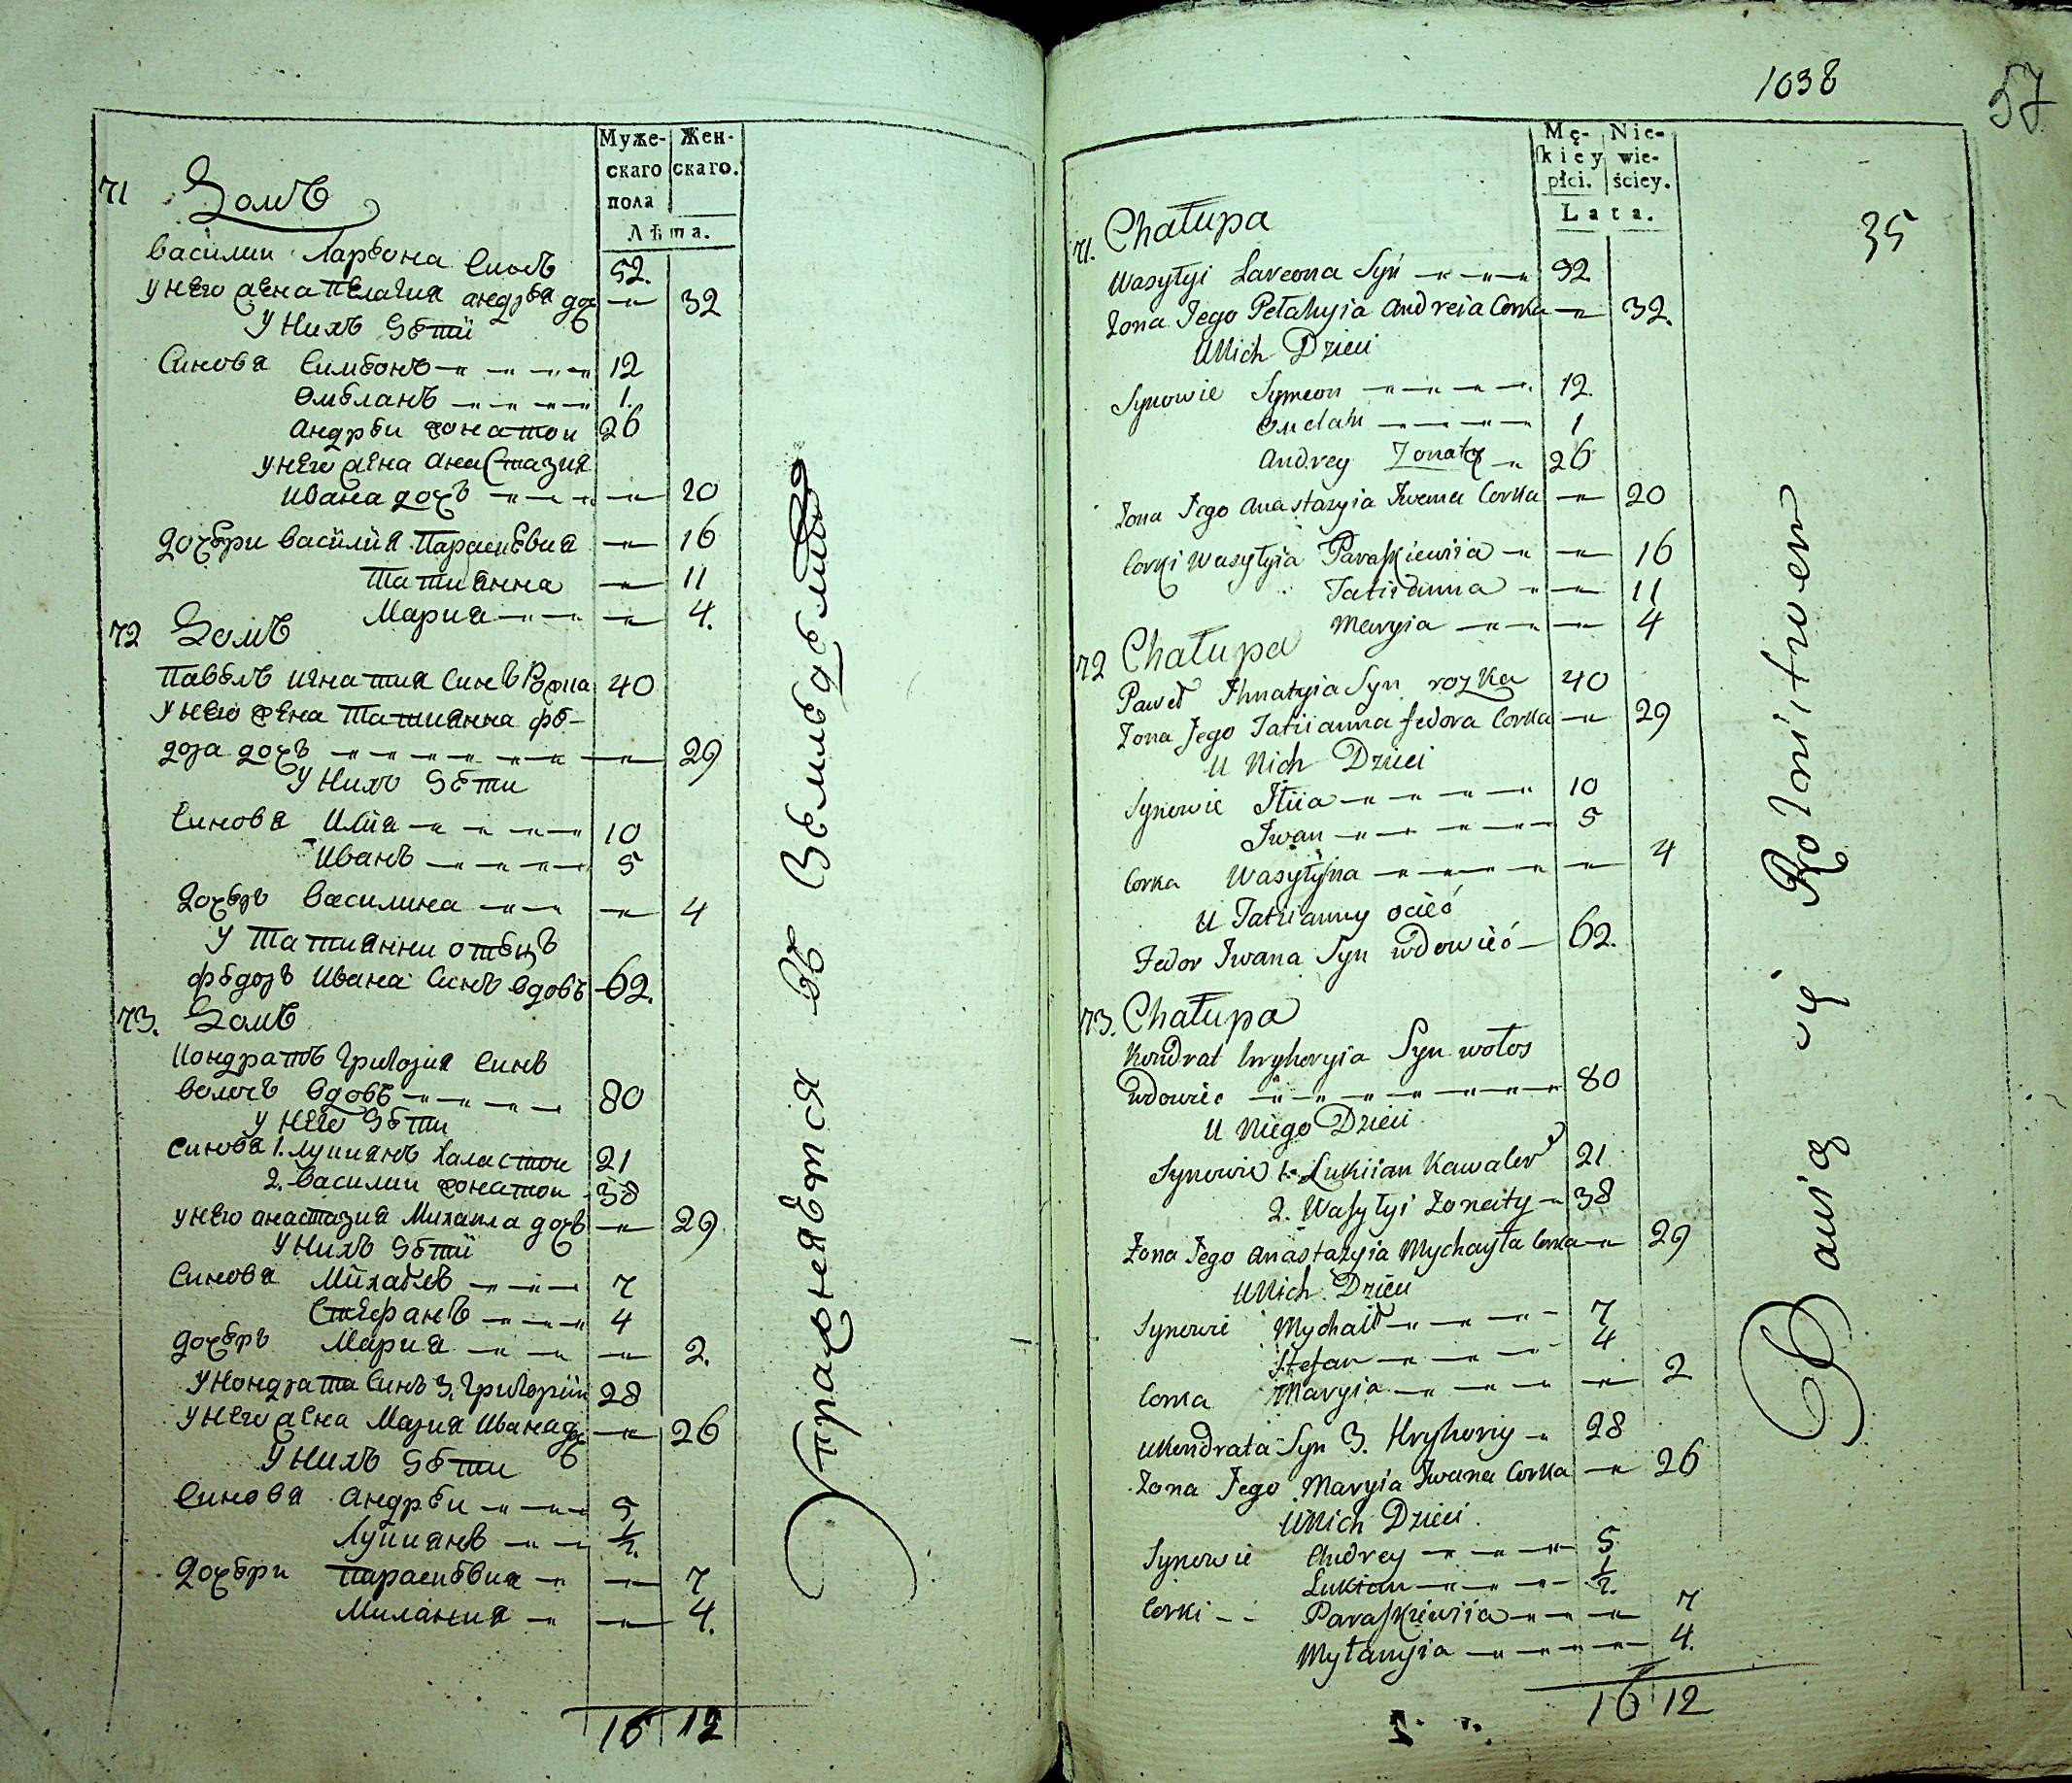 Муже-
скаго
пола
Жен-
скаго.
Лѣта.
71 Домъ
Василии Лареона Синъ 52.
У него жена Пелагия андрѣя доч 32
У Нихъ Дѣти
Синова Симеонъ 12
Омелянъ 1.
андрѣи жонатои 26
У него жена анастазия
ивана дочъ 20
дочери василия Параскевия 16
Татиянна 11
Мария 4.
72 Домъ
Павелъ игнатия Синъ 40
У него жена Татиянна фе-
дора дочъ 29
У Нихъ Дѣти
Синова Илия 10
Иванъ 5
дочеръ василина 4
У Татиянни отецъ
федоръ Ивана Синъ вдовъ 62.
73. Домъ
Кондратъ григория Синъ
волосъ вдовъ 80
У Него Дѣти
Синова 1. лукиянъ холастои 21
2. василии жонатои 38
У него анастазия Михаила дочъ 29
У Нихъ Дѣти
Синова Михаелъ 7
Стефанъ 4
дочеръ Мария 2.
У Кондрата Синъ 3. григорiи 28
У него жена Мария Ивана доч 26
У Нихъ Дѣти
Синова андрѣи 5
Лукиянъ 1/2.
дочери Параскевия 7
Милания 4.
16 12
Упражняется въ Земледелии
1038
57
35
Mę-
skiey
płci.
Nie-
wie-
ściey.
Lata.
71. Chałupa
Wasyłyi Lareona Syn 52
Zona Jego Pełahyia Andreia Corka 32.
U Nich Dzieci
Synowie Symeon 12.
Omelan 1
Andrey Zonaty 26
Zona Jego Anastazyia Iwana Corka 20
Corki Wasyłyia Paraskiewiia 16
Tatiianna 11
Maryia 4
72 Chałupa
Paweł Ihnatyia Syn rozka 40
Zona Jego Tatiianna fedora Corka 29
U Nich Dzieci
Synowie Iliia 10
Iwan 5
Corka Wasyłyna 4
U Tatiianny ociec
Fedor Iwana Syn wdowiec 62.
73. Chałupa
Kondrat Hryhoryia Syn wołos
wdowiec 80
U Niego Dzieci
Synowie 1. Lukiian Kawaler 21
2. Wasyłyi Zonaty 38
Zona Jego Anastazyia Mychayła Corka 29
U Nich Dzieci
Synowie Mychaił 7
Stefan 4
Corka Maryia 2
U Kondrata Syn 3. Hryhoriy 28
Zona Jego Maryia Iwana Corka 26
U Nich Dzieci
Synowie Andrey 5
Lukian 1/2.
Corki Paraskiewiia 7
Myłanyia 4.
16 12
Bawią się Rolnictwem